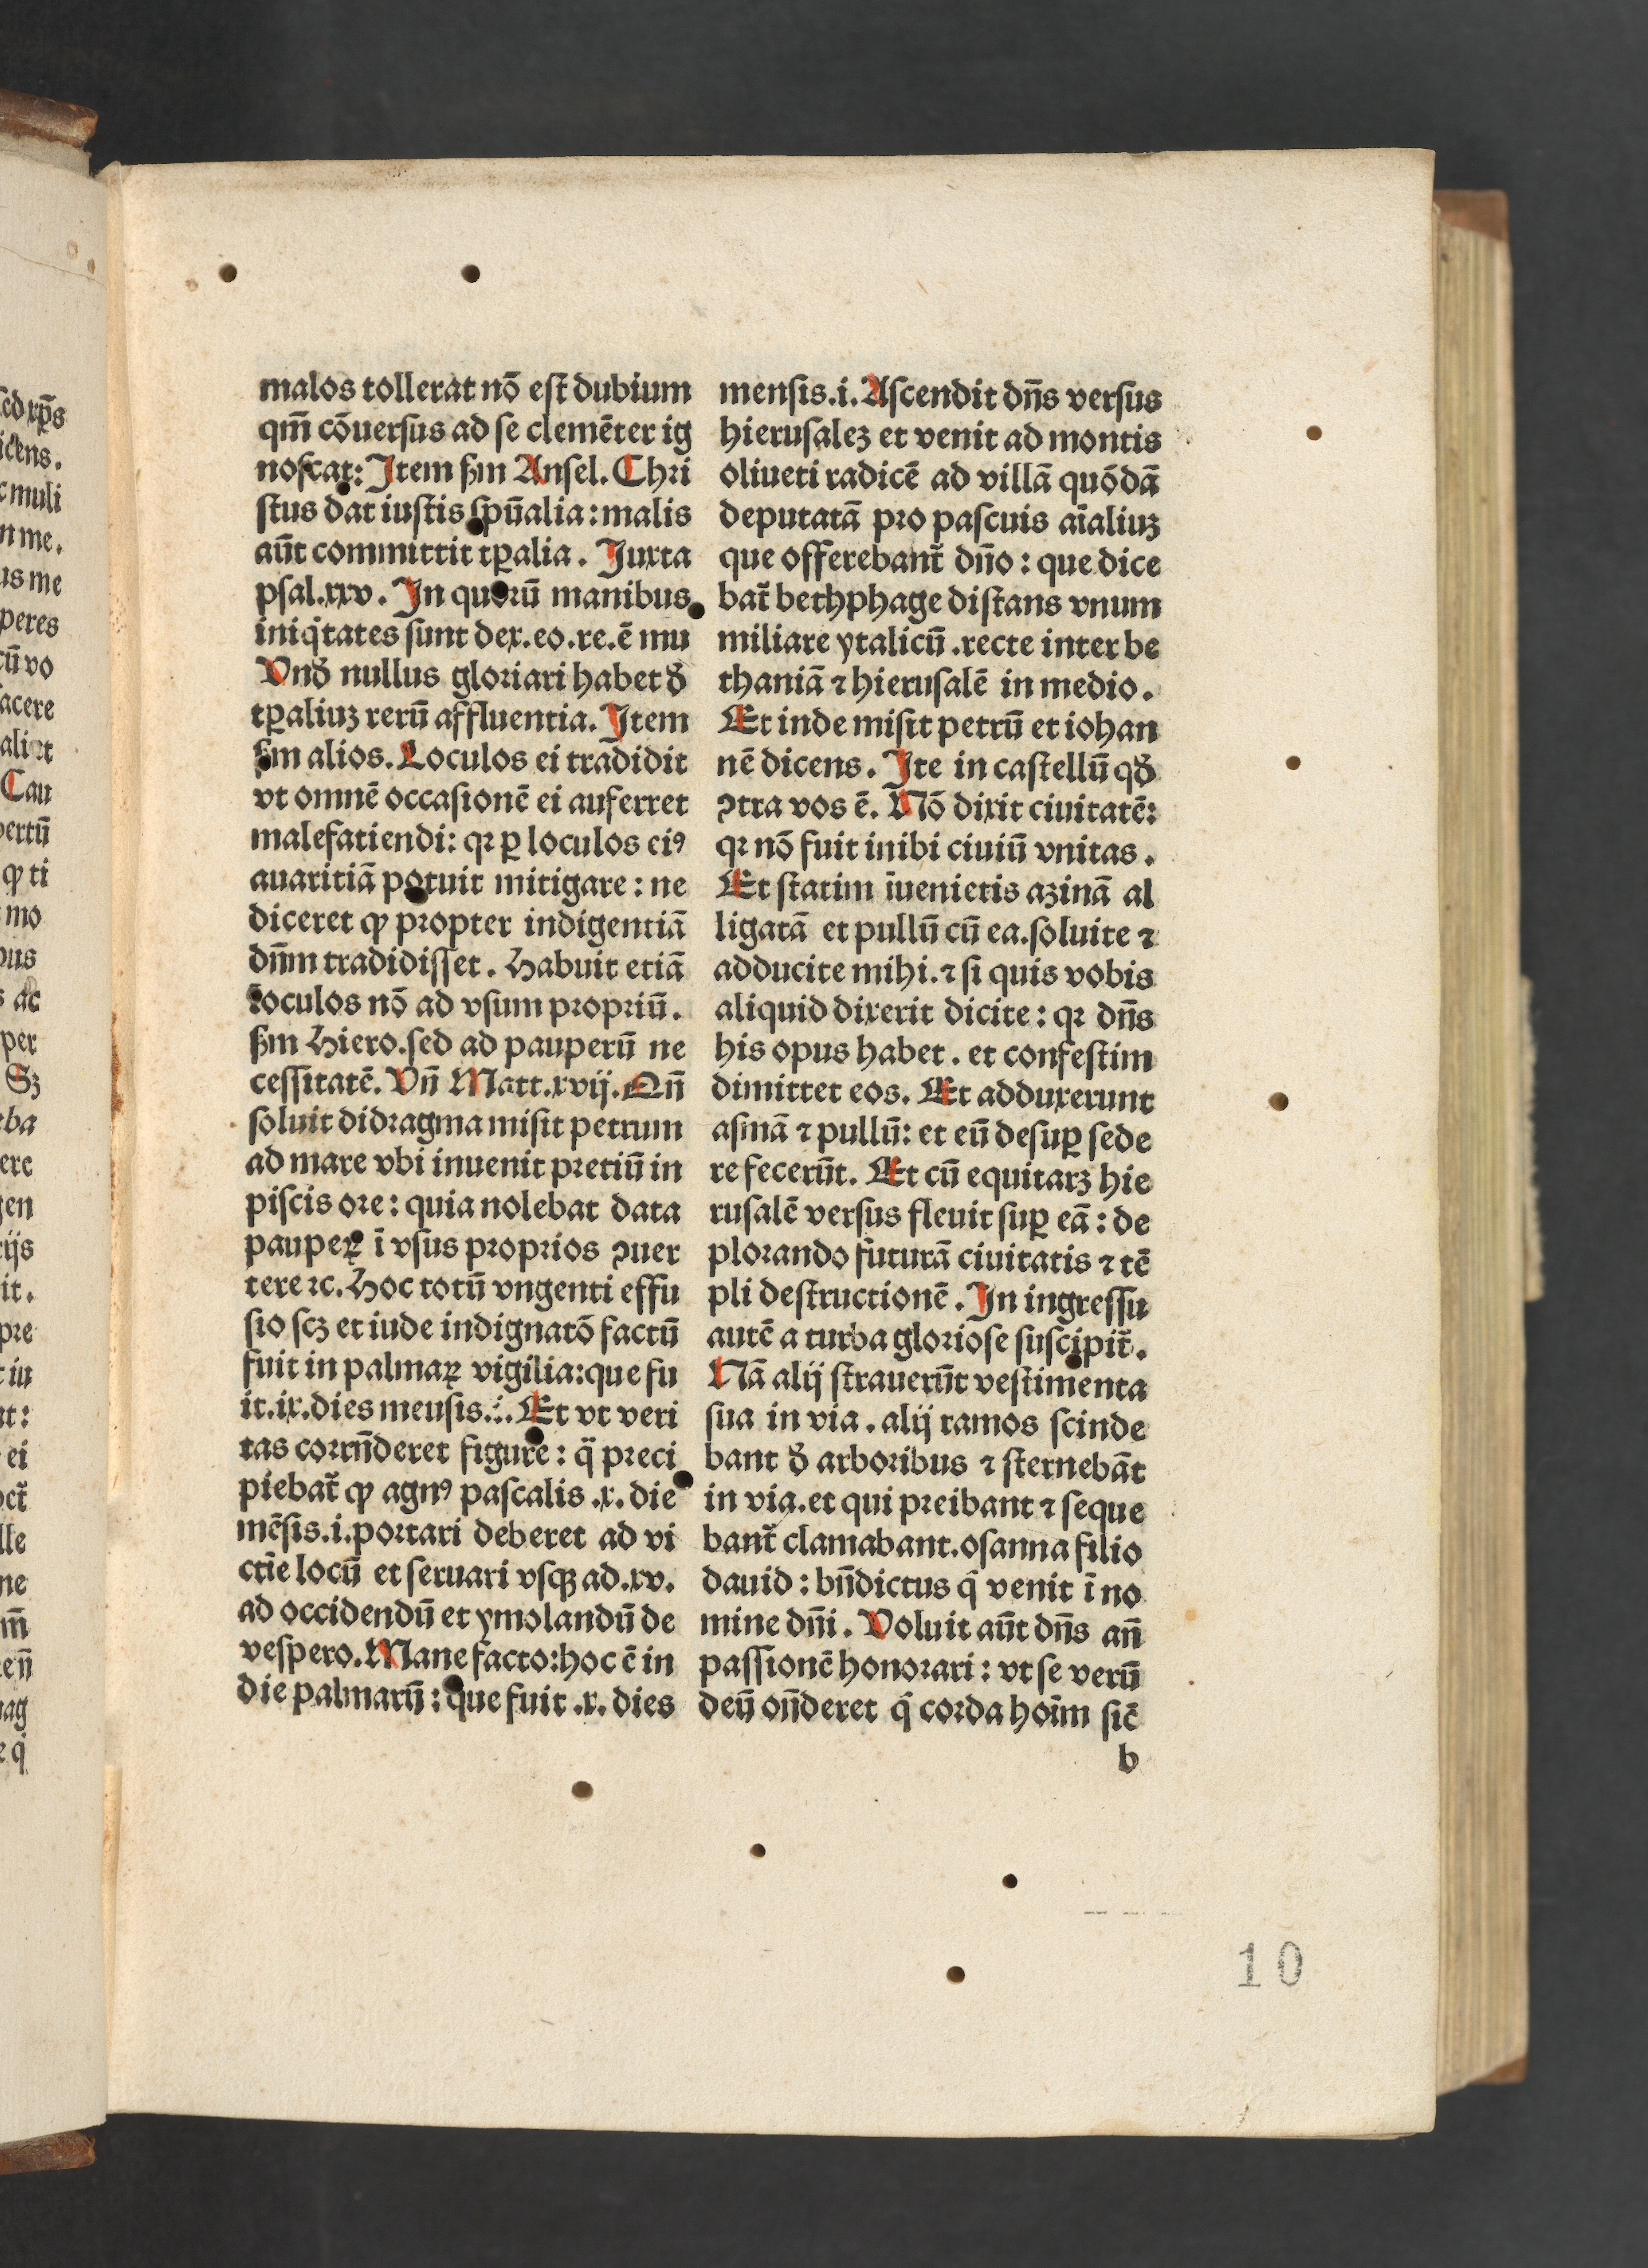 malos tollerat nō eſt dubium
qm̄ cōuersus ad se clemēter ig
noſcat: Item ẜm Anſel. Chri
ſtus dat iuſtis ſpūalia: malis
aūt committit tꝑalia. Iuxta
psal.xxv. In quorū manibus
iniqͥtates ſunt dex.eo.re.ē mu
Vnð nullus gloriari habet ð
tꝑaliuꝫ rerū affluentia. Item
ẜm alios. Loculos ei tradidit
vt omnē occaſionē ei auferret
malefatiendi: qꝛ ꝑ loculos eiꝰ
auaritiā potuit mitigare: ne
diceret ꝙ propter indigentiā
dn̄m tradidiſſet. Habuit etiā
loculos nō ad vſum propriū.
ẜm Hiero.ſed ad pauperū ne
ceſſitatē. Vn̄ Matt.xvij. Qn̄
ſoluit didragma miſit petrum
ad mare vbi inuenit pretiū in
piſcis ore: quia nolebat data
pauperꝝ ī vſus proprios ꝯuer
tere ⁊c. Hoc totū vngenti effu
ſio ſcꝫ et iude indignatō factū
fuit in palmaꝝ vigilia: que fu
it.ix.dies meuſis.i. Et vt veri
tas corrn̄deret figure: q̄ preci
piebat̄ ꝙ agnꝰ paſcalis .x. die
mēſis.i.portari deberet ad vi
ctīe locū et ſeruari vſqꝫ ad.xv.
ad occidendū et ymolandū de
veſpero. Mane facto: hoc ē in
die palmarū: que fuit .x. dies
menſis.i. Aſcendit dn̄s verſus
hieruſaleꝫ et venit ad montis
oliueti radicē ad villā quōdā
deputatā pro paſcuis aīaliuꝫ
que offerebant̄ dn̄o: que dice
bat̄ bethphage diſtans vnum
miliare ytalicū .recte inter be
thaniā ⁊ hieruſalē in medio.
Et inde miſit petrū et iohan
nē dicens. Ite in caſtellū qð
ꝯtra vos ē. Nō dixit ciuitatē:
qꝛ nō fuit inibi ciuiū vnitas.
Et ſtatim īuenietis aꝫinā al
ligatā et pullū cū ea.ſoluite ⁊
adducite mihi.⁊ ſi quis vobis
aliquid dixerit dicite: qꝛ dn̄s
his opus habet. et confeſtim
dimittet eos. Et adduxerunt
aſinā ⁊ pullū: et eū deſuꝑ ſede
re fecerūt. Et cū equitarꝫ hie
ruſalē verſus fleuit ſuꝑ eā: de
plorando futurā ciuitatis ⁊ tē
pli deſtructionē. In ingreſſu
autē a turba glorioſe ſuſcipit̄.
Nā alij ſtrauerūt veſtimenta
ſua in via. alij ramos ſcinde
bant ð arboribus ⁊ ſternebāt
in via.et qui preibant ⁊ ſeque
bant̄ clamabant.oſanna filio
dauid: bn̄dictus qͥ venit ī no
mine dn̄i. Voluit aūt dn̄s an̄
paſſionē honorari: vt ſe verū
deū on̄deret qͥ corda hoīm ſic̄
b
10